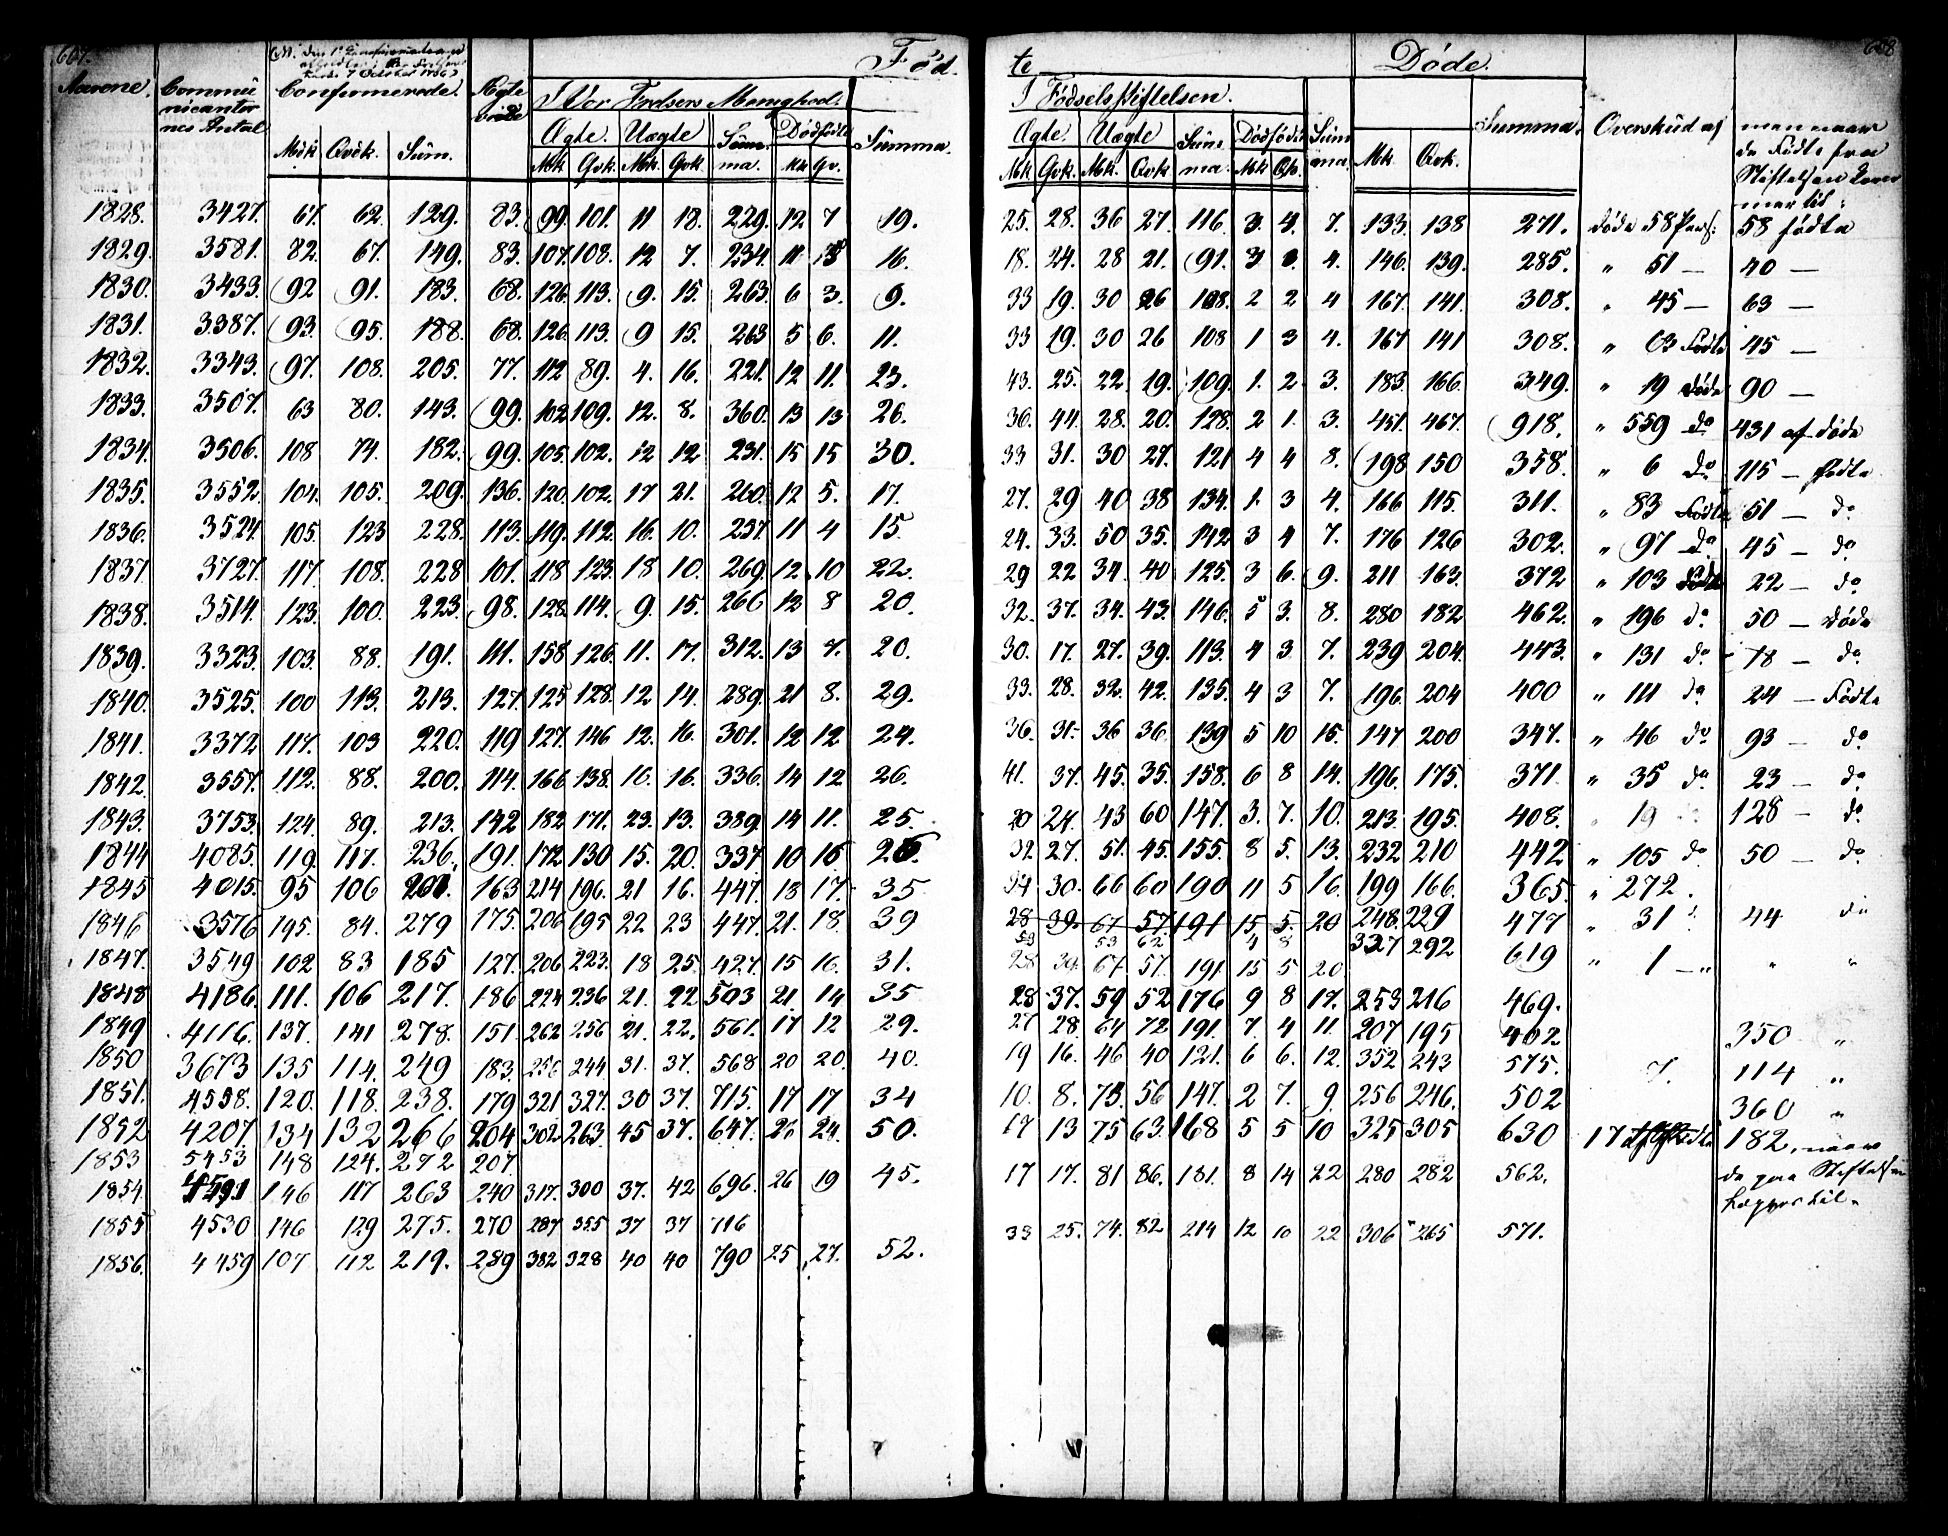 667.
Fød
Aarene. Communicanternes Antal Confirmerede. Ægteviede I Vor Frelsers Menighed.
Ægte. Uægte Summa. Dødfødte Summa.
Mdk Qvdk. Sum. Mdk Qvk. Mdk. Qvk. Mk Qv.
1828. 3427. 67. 62. 129. 83. 99. 101. 11 18. 229. 12 7 19.
1829. 3581. 82. 67. 149. 83. 107. 108. 12 7. 234. 11 16.
1830. 3433. 92 91. 183. 68. 126. 113. 9. 15. 263. 6 3. 9.
1831. 3387. 93. 95. 188. 68. 126. 113. 9 15. 263 5 6. 11.
1832. 3343. 97. 108. 205. 77. 112 89. 4. 16. 221. 12 11. 23.
1833. 3507. 63 80. 143. 99. 102 109. 12. 8. 360. 13 13 26.
1834. 3506. 108 74. 182. 99. 105. 102. 12 12 231. 15 15 30.
1835. 3552. 104. 105. 209. 136. 120. 102. 17 21. 260. 12 5. 17.
1836. 3524. 105. 123 228. 113. 119. 112. 16. 10. 257. 11 4 15.
1837. 3727. 117. 108. 228 101. 118 123. 18 10. 269. 12 10 22.
1838. 3514. 123. 100. 223. 98. 128. 114. 9. 15. 266 12 8 20.
1839. 3323. 103. 88. 191. 111. 158 126. 11. 17. 312. 13 7. 20.
1840. 3525. 100 113. 213. 127. 125 128. 12 14. 289. 21 8. 29.
1841. 3372 117. 103 220. 119 127. 146 12. 16. 301. 12 12 24.
1842. 3557. 112. 88. 200. 114. 166. 138. 16. 16. 336. 14 12 26.
1843. 3753. 124. 89. 213. 142 182 171. 23. 13. 389. 14 11. 25.
1844 4085. 119. 117. 236. 191. 172 130 15. 20. 337. 10 16
1845 4015. 95 106 163 214 196. 21 16. 447. 18 17. 35
1846 3576 195. 84. 279 175. 206 195 22 23 447. 21. 18. 39
1847. 3549 102 83 185 127. 206 223. 18 25. 427. 15 16. 31.
1848 4186. 111. 106 217. 186 224 236 21. 22 503 21. 14 35
1849 4116. 137. 141 278. 151. 262 256 21. 22. 561. 17 12 29.
1850 3673 135 114. 249 183. 256 244 31. 37. 568 20 20. 40.
1851. 4558. 120. 118. 238. 179 321 327. 30 37. 715. 17 17 34
1852 4207. 134 132 266 204 302 263. 45 37. 647. 26 24. 50.
1853 5453 148 124. 272 207
1854. 146 117 263 240 317. 300 37. 42 696. 26 19 45.
1855 4530 146 129 275. 270 287 355 37 37 716
1856. 4459 107 112 219. 289 382 328 40 40 790 25 27. 52.
668
te Døde.
I Fødselsstiftelsen.
Ægte. Uægte Summa. Dødfødte Summa. Mk. Qvk. Summa. Overskud af men naar de Fødte fra Stiftelsen
Mk Qvk. Mk. Qvk Mk Qv.
25. 28. 36 27. 116. 3. 4. 7. 133. 138 271. døde 58 Pers: 58 fødte
18. 24. 28 21. 91. 3 4. 146. 139. 285. " 51 — 40 —
33 19. 30 26 108. 2 2 4 167. 141. 308. " 45 — 63 —
33 29. 30 26 108 1 3 4. 167 141 308. " 63 Fødte 45 —
43. 25. 22 19. 109. 1. 2 3. 183. 166. 349. " 19 døde 90 —
36. 44. 28. 20. 128. 2 1. 3. 451. 467. 918. " 559 do 431 af døde
33 31. 30 27. 121 4 4 8. 198 150 358. " 6 do 115 — fødte
27. 29 40 38 134. 1. 3 4. 166 115. 311. " 83 Fødte 51 — do
24. 33. 50 35. 142 3 4 7. 176 126 302. " 97 do 45 — do
29 22 34. 40 125. 3 6. 9. 211 163. 372 " 103 Fødte 22 — do
32. 37. 34. 43. 146. 5 3. 8. 280 182 462. " 196 do 50 — døde
30. 17. 27. 39. 113. 4 3 7. 239 204. 443. " 131 do 78 — do
33. 28. 32. 42. 135. 4 3 7. 196. 204 400 " 111 do 24 — Fødte
36. 31. 36 36. 139 5 10 15. 147 200 347. " 46 do 93 — do
41. 37. 45. 35. 158. 6 8 14. 196. 175. 371 " 35 do 23 — do
20 24. 43 60 147. 3. 7. 10. 213. 195. 408. " 19 128 — do
32 27. 51. 45. 155. 8 5. 13. 232 210 442 " 105 do 50 — do
34 30. 66 60 190 11 5 16. 199 166. 365. " 272.
28 39. 67 57. 191 15 5. 20 248. 229 477 " 31 44 do
53 53 62. 4 8 327 292 619 " 1 — " " "
28 39. 67 57. 191. 15 5 20
28 37. 59 52 176 9 8 17. 253 216 469.
27 28. 64 72 191. 7. 4 11. 207 195 402 350 "
19 16. 46 40 121. 6 6. 12. 352 243 575. 7. 114 "
10. 8. 73. 56 147. 2 7. 9. 256 246. 502 360 "
17 13 75 63. 168 5 5 10 325 305 630 17 182. naar
17 17. 81 86. 181. 8 14 22 280 282 562. de paa Stiftelsen
lægges til.
33 25. 74. 82 214 12 10 22 306 265 571.